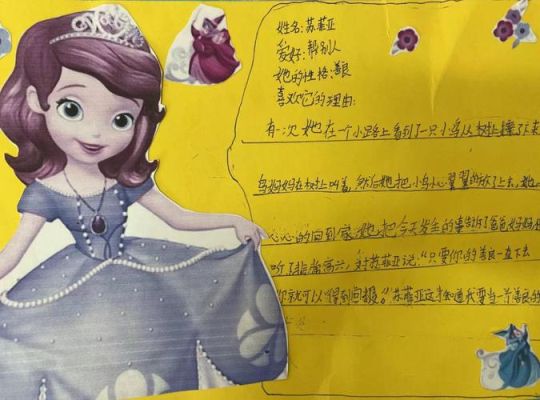 姓名:苏菲亚
爱好:帮别人
她的性格:善良
喜欢它的理由:
有一次她在一个小路上看到了一只小鸟从树上摔了下来
鸟妈妈在树上叫着,然后她把小鸟小心翼翼的放了上去,她
心心的回到家她把今天发生的事告诉了爸爸妈妈
听了非常高兴,对苏菲亚说:“只要你的善良一直下去
你就可以得到回报。”苏菲亚这才知道我要当一个善良的